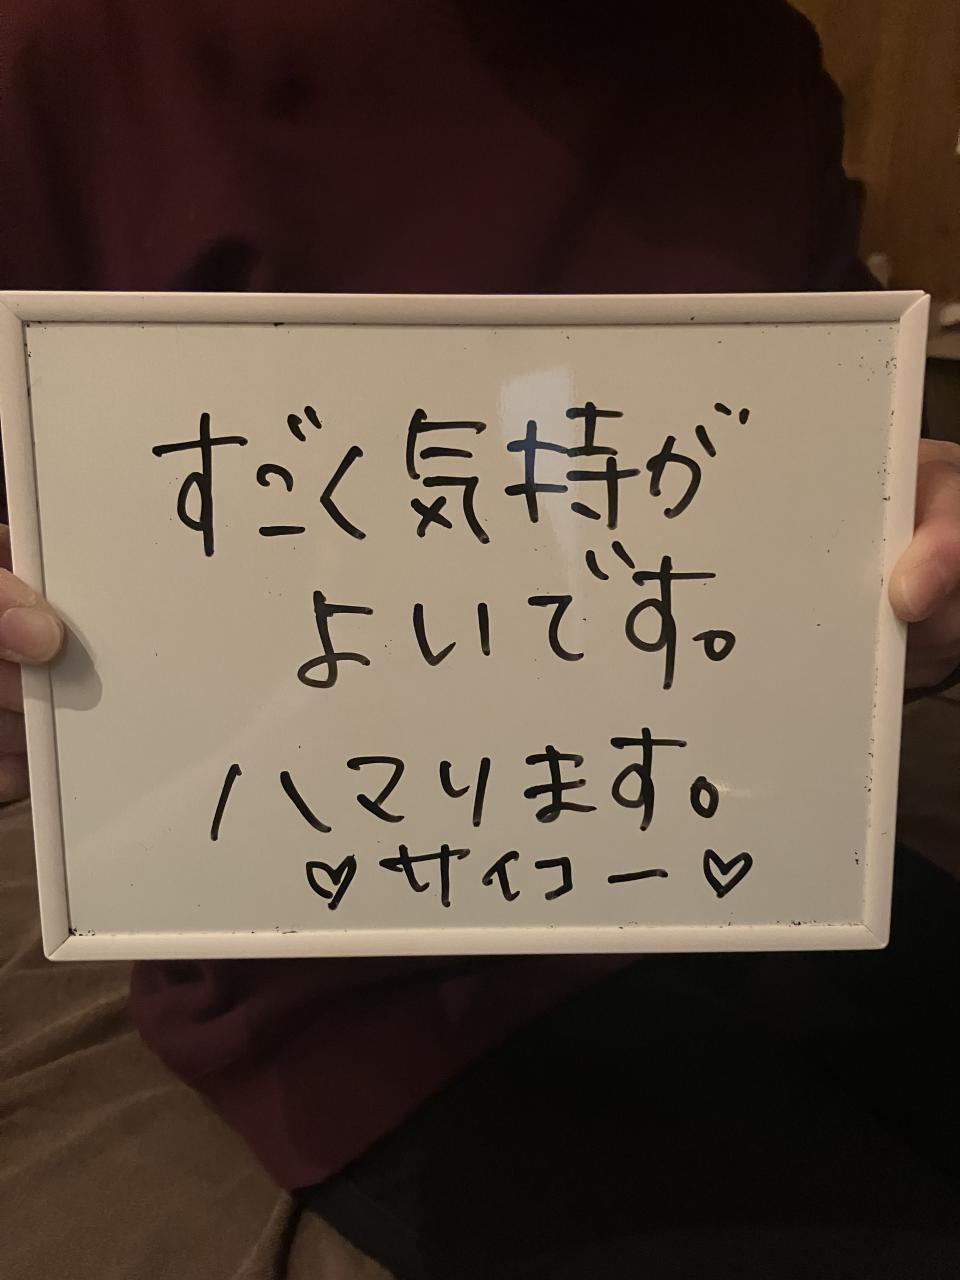 すごく気持が
よいです。
ハマります。
♡サイコー♡